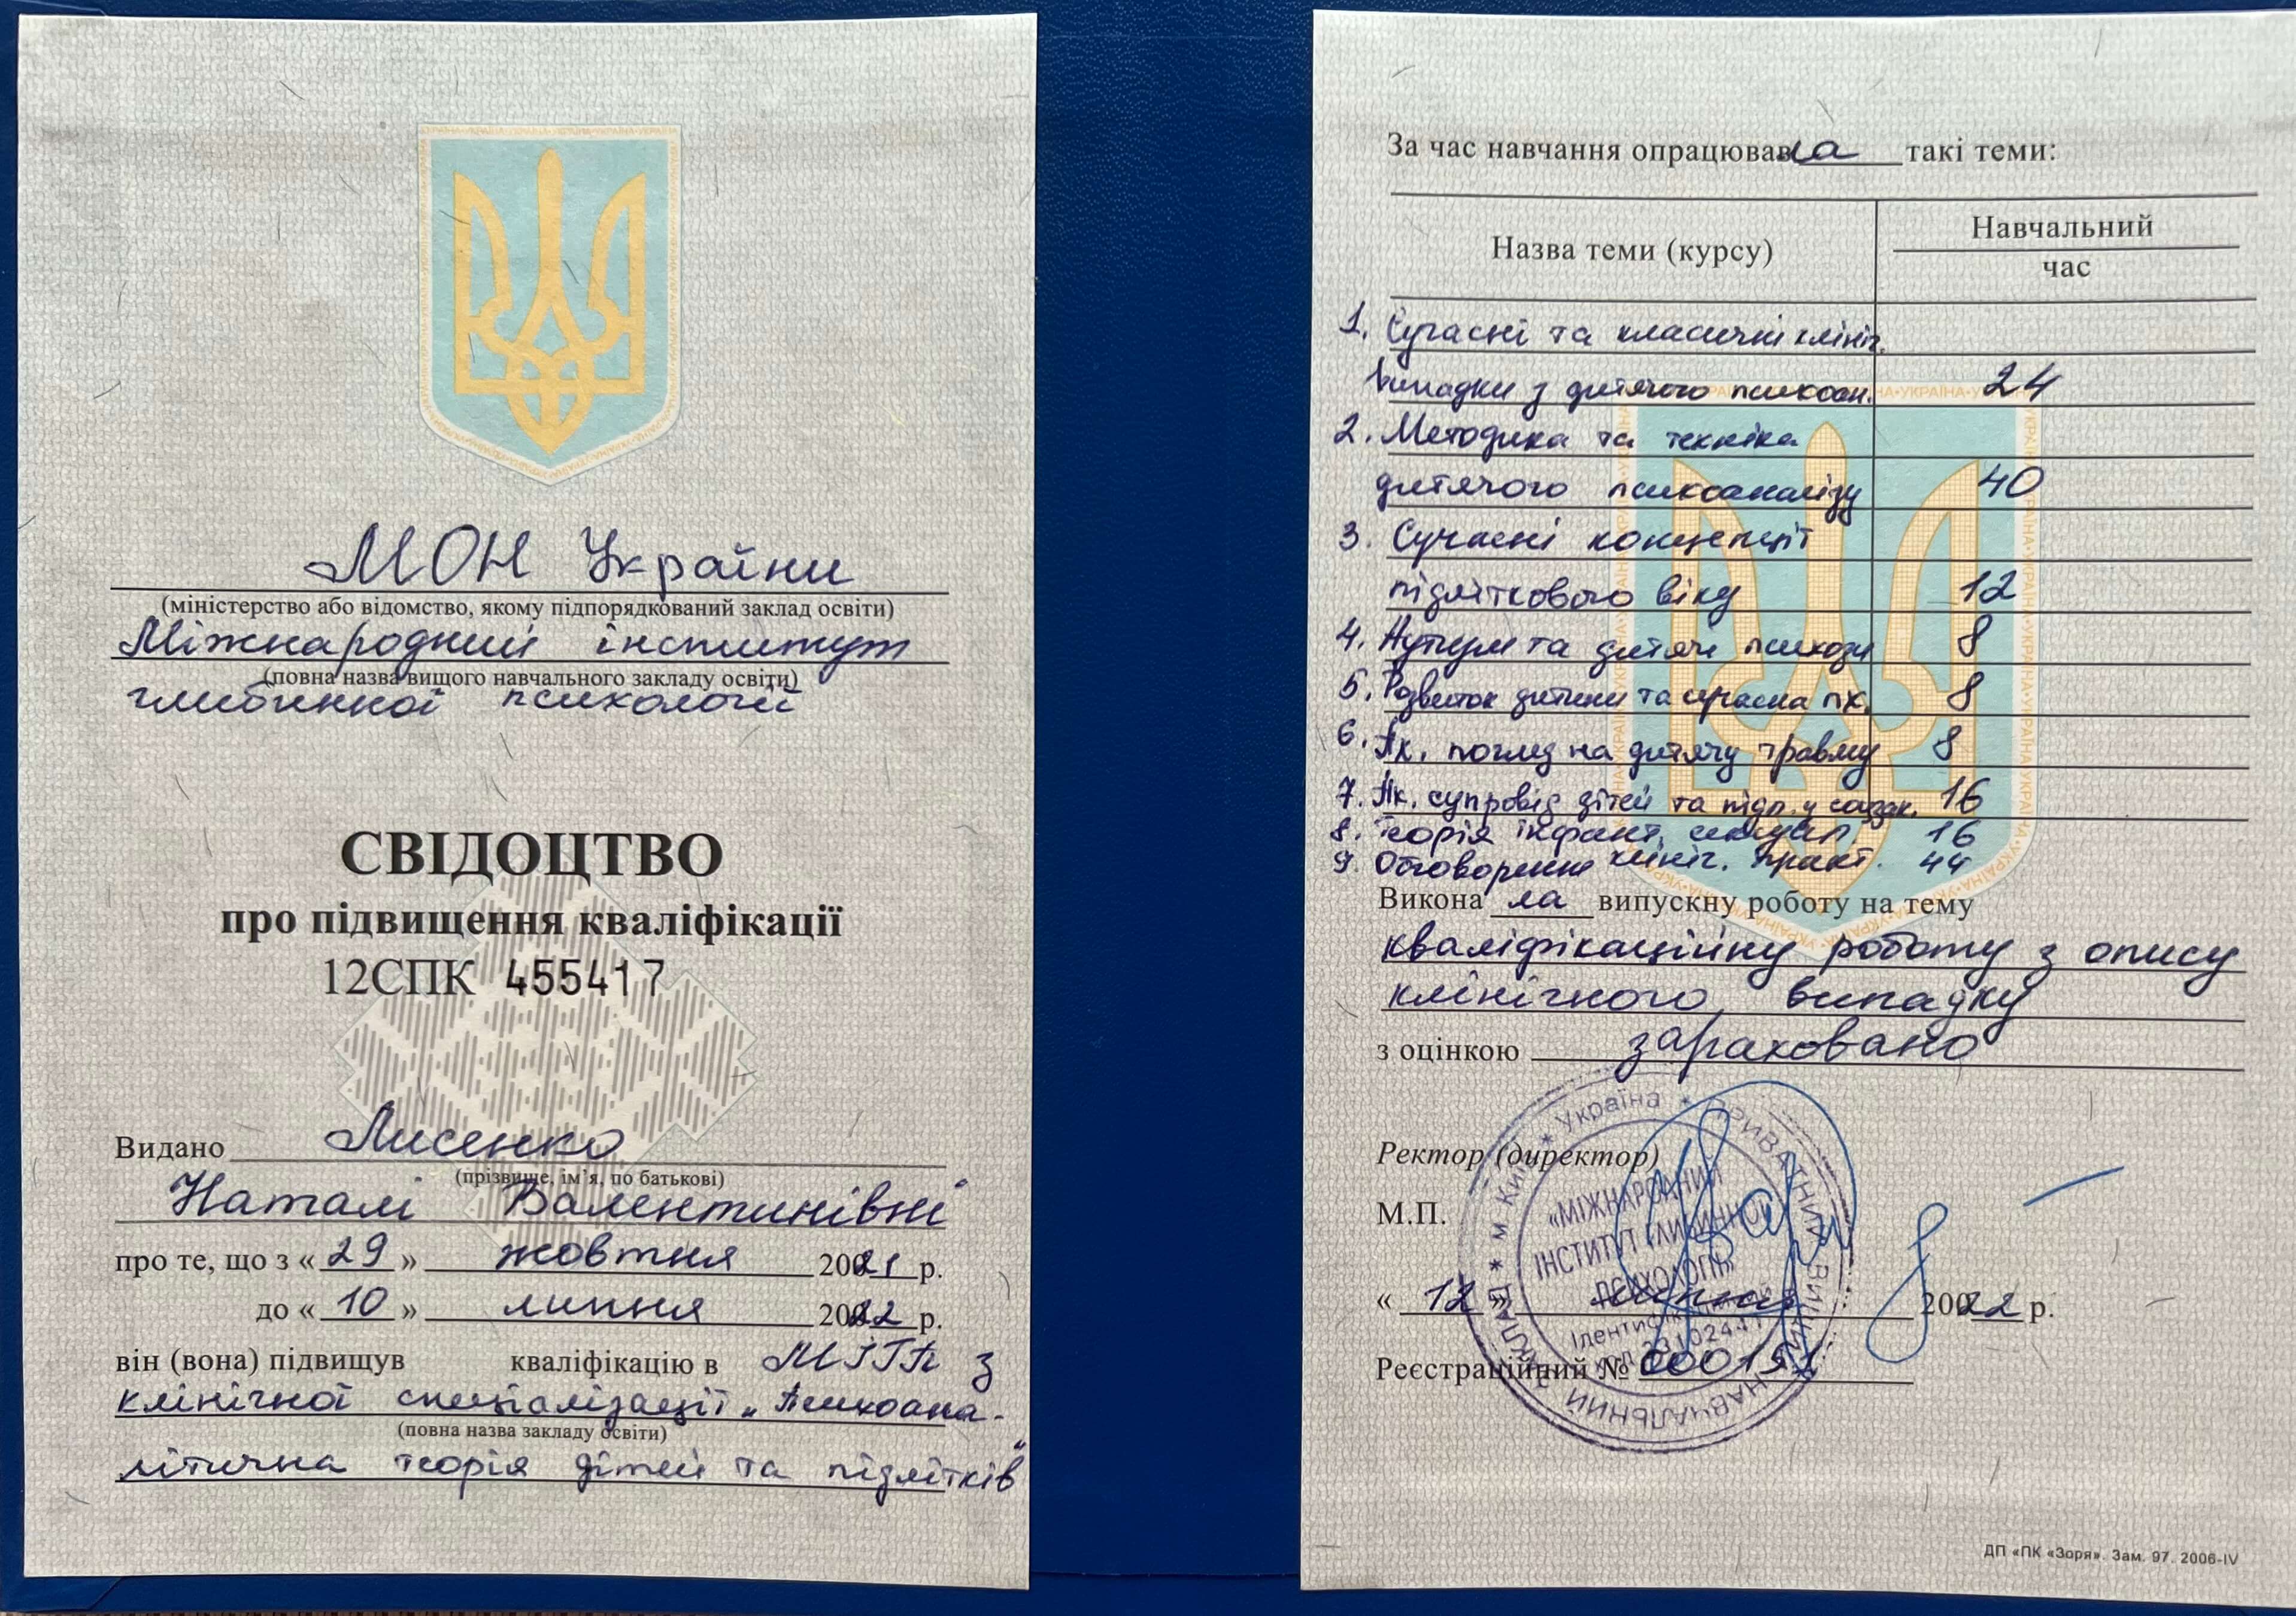 МОН України
(міністерство або відомство, якому підпорядкований заклад освіти)
Міжнародний інститут
(повна назва вищого навчального закладу освіти)
глибинної психології
СВІДОЦТВО
про підвищення кваліфікації
12СПК 455417
Видано Лисенко
(прізвище, ім’я, по батькові)
Наталі Валентинівні
про те, що з « 29 » жовтня 2021 р.
до « 10 » липня 2022 р.
він (вона) підвищув кваліфікацію в МІГП з
клінічної спеціалізації „Психоана-
(повна назва закладу освіти)
літична теорія дітей та підлітків"
За час навчання опрацювавла такі теми:
Назва теми (курсу)
Навчальний
час
1. Сучасні та класичні клініч.
випадки з дитячого психоан. 24
2. Методика та техніка
дитячого психоаналізу 40
3. Сучасні концепції
підліткового віку 12
4. Аутизм та дитячі психози 8
5. Розвиток дитини та сучасна пк. 8
6. Пк. погляд на дитячу травму 8
7. Пк. супровід дітей та підл. у 16
8. Теорія інфант. сексуал. 16
9. Обговорення клініч. практ. 44
Викона ла випускну роботу на тему
кваліфікаційну роботу з опису
клінічного випадку
з оцінкою зараховано
Ректор (директор)
М.П.
« 12 » липня 2022 р.
Реєстраційний № 000151
* м Київ * Україна * ПРИВАТНИЙ ВИЩИЙ НАВЧАЛЬНИЙ ЗАКЛАД
«МІЖНАРОДНИЙ
ІНСТИТУТ ГЛИБИННОЇ
ПСИХОЛОГІЇ»
Ідентифікаційний
код
ДП «ПК «Зоря». Зам. 97. 2006-IV